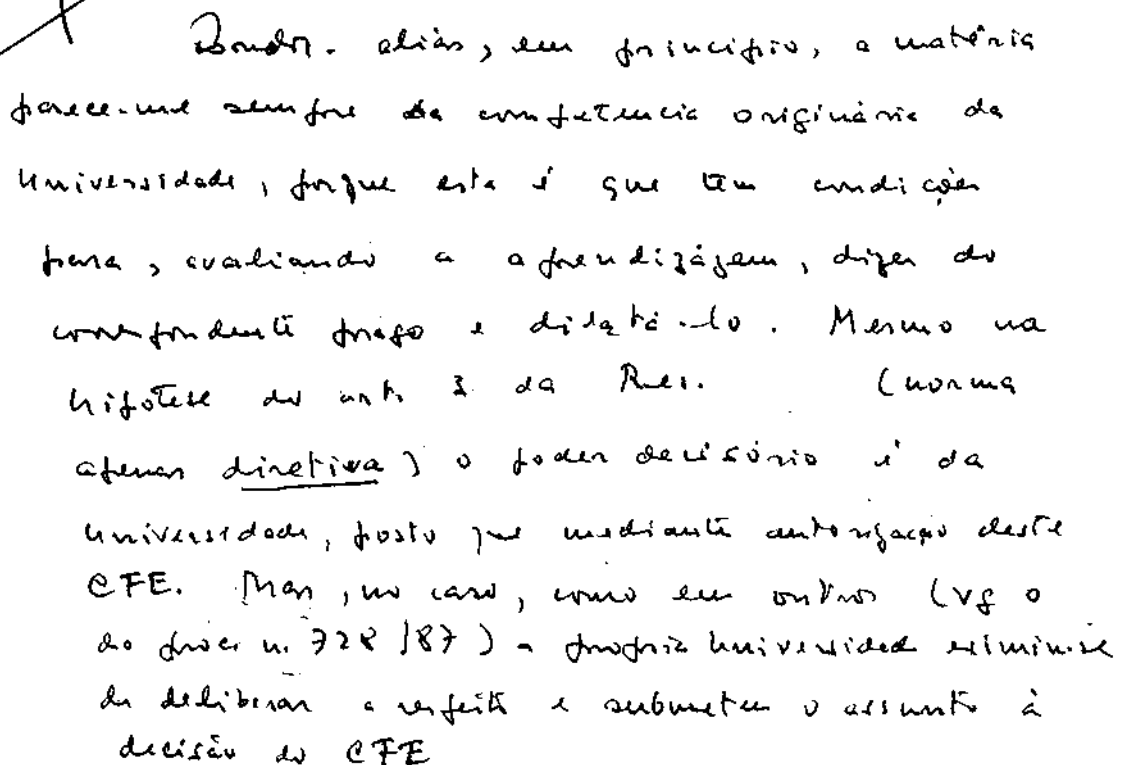 aliás, em princípio, a matéria
parece-me sempre da competencia originária da
Universidade, porque esta é que tem condições
para, avaliando a aprendizágem, dizer do
correspondente prazo e dilatá-lo. Mesmo na
hipótese do art. 3 da Res. (norma
apenas diretiva) o poder decisório é da
Universidade, posto que mediante autorização deste
CFE. Mas, no caso, como em outros (vg o
do proc. n. 728/87) a própria Universidade eximiu-se
de deliberar a respeito e submeteu o assunto à
decisão do CFE